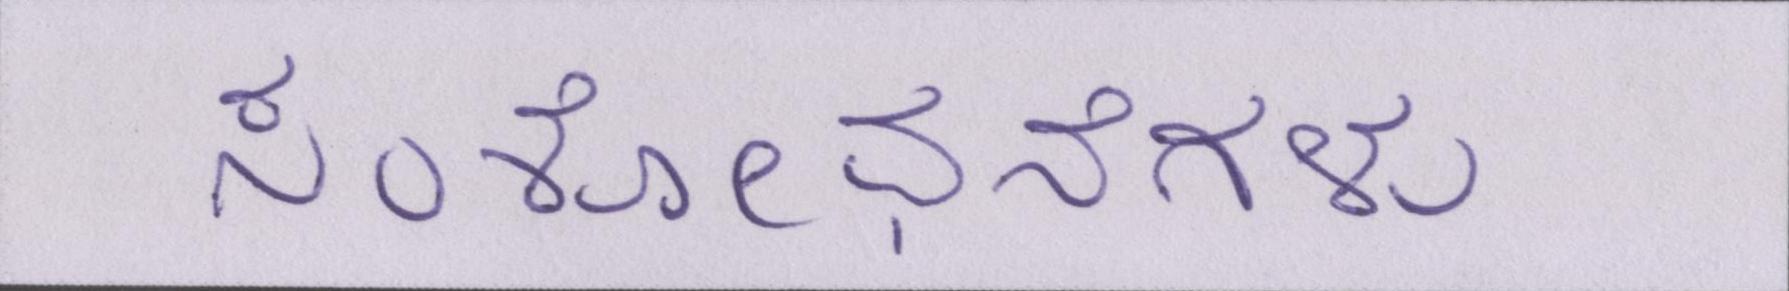 ಸಂಶೋಧನೆಗಳು